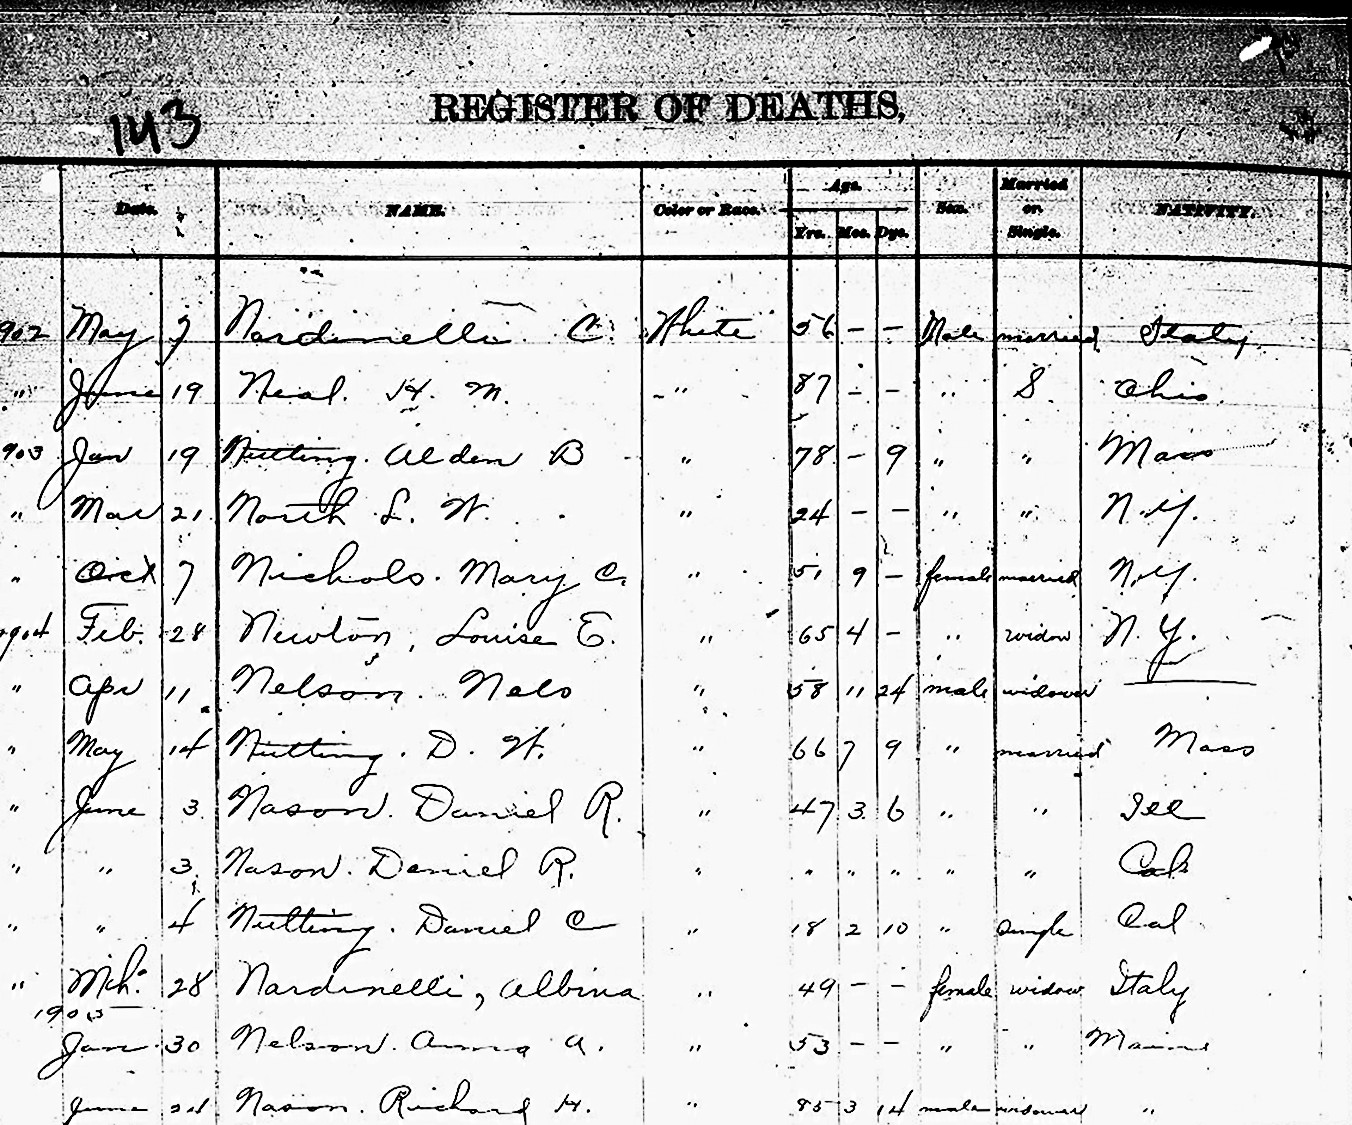 143
REGISTER OF DEATHS,
Date. NAME. Color or Race. Age. Yrs. Mos. Dys. Sex. Married or Single. NATIVITY.
902 May 7 Nardinelli C. White 56 – – Male married Italy
" June 19 Neal. H. M. " 87 – – " S. Ohio.
903 Jan 19 Nutting. Alden B " 78 – 9 " " Mass
" Mar 21 North L. W. " 24 – – " " N.Y.
" Oct 7 Nichols. Mary C. " 51 9 – female married N.Y.
1904 Feb. 28 Newton, Louise E. " 65 4 – " widow N.Y.
" Apr 11 Nelson. Nels " 58 11 24 male widower ———
" May 14 Nutting. D. W. " 66 7 9 " married Mass
" June 3 Nason. Daniel R. " 47 3 6 " " Ill
" " 3. Nason. Daniel R. " " " " " " Cal
" " 4 Nutting. Daniel C " 18 2 10 " single Cal
" Mch. 28 Nardinelli, Albina " 49 – – female widow Italy
1905
Jan 30 Nelson. Anna A. " 53 – – " " Maine
June 24 Nason. Richard H. " 85 3 14 male widower "